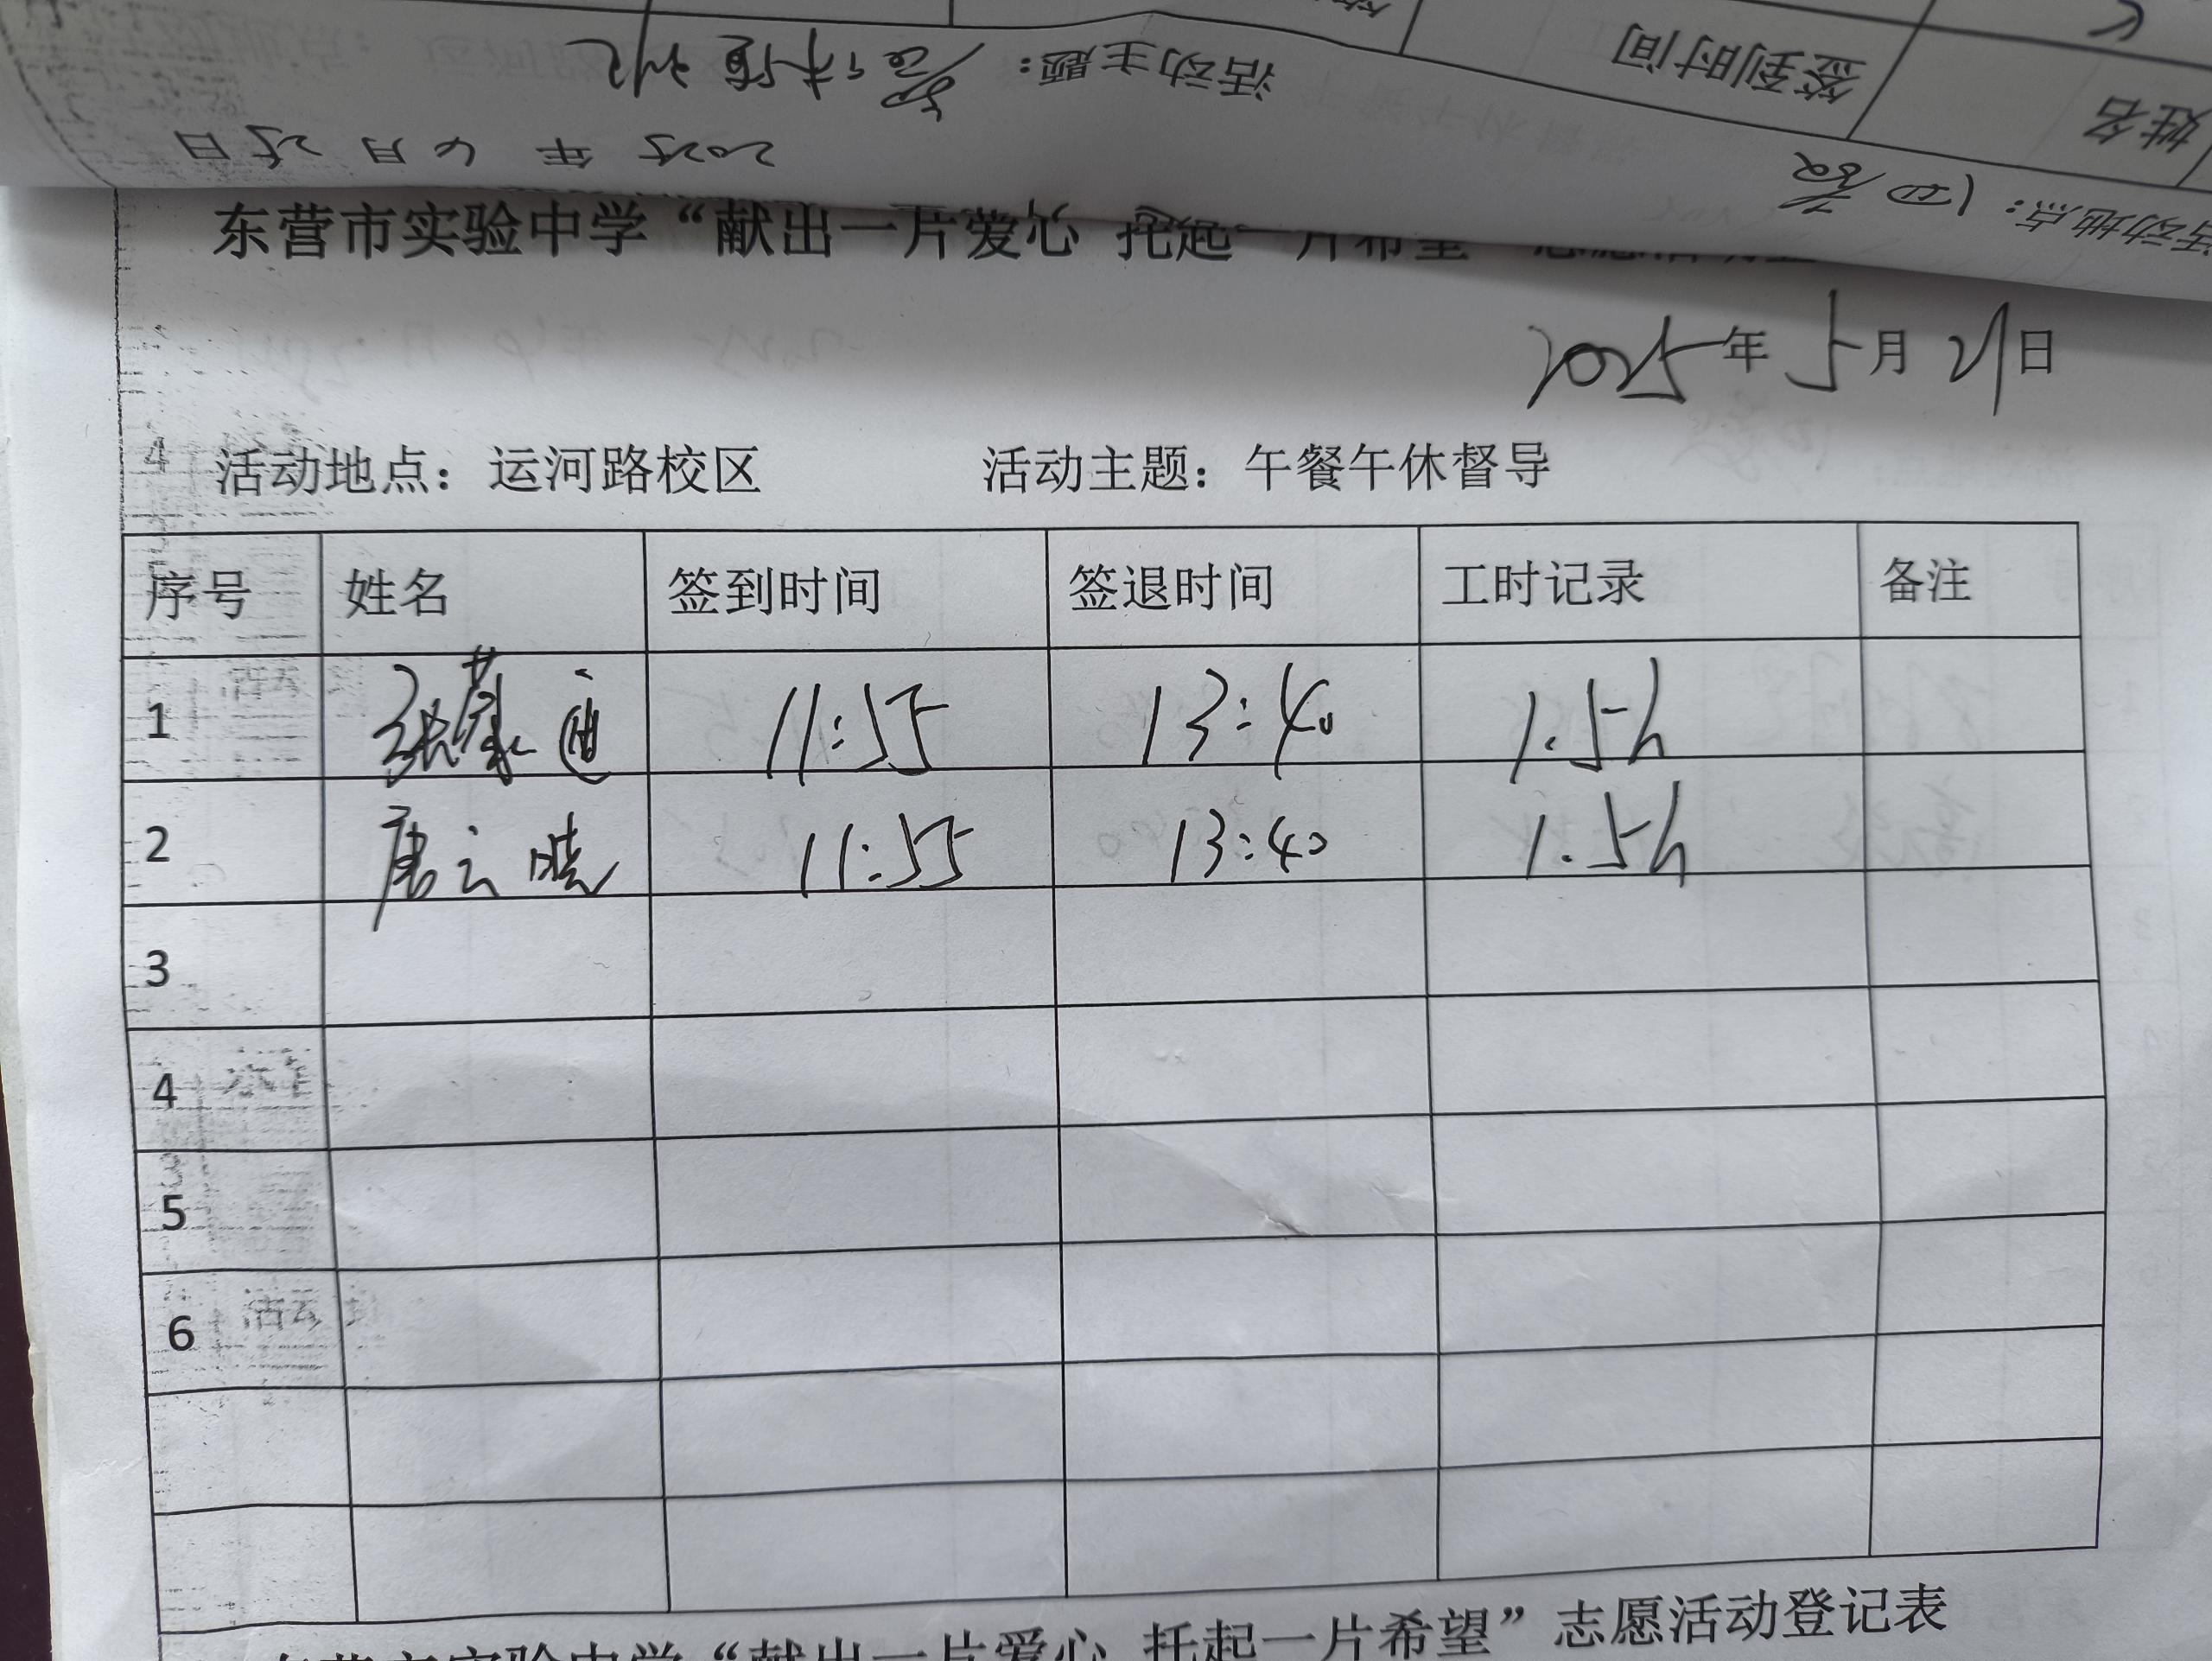 活动主题：
签到时间
姓名
2025年6月25日
活动地点：
东营市实验中学“献出一片爱心 托起一片希望”
2025年5月21日
活动地点：运河路校区 活动主题：午餐午休督导
序号 姓名 签到时间 签退时间 工时记录 备注
1 11:55 13:40 1.5h
2 唐云晓 11:55 13:40 1.5h
3
4
5
6
东营市实验中学“献出一片爱心 托起一片希望”志愿活动登记表